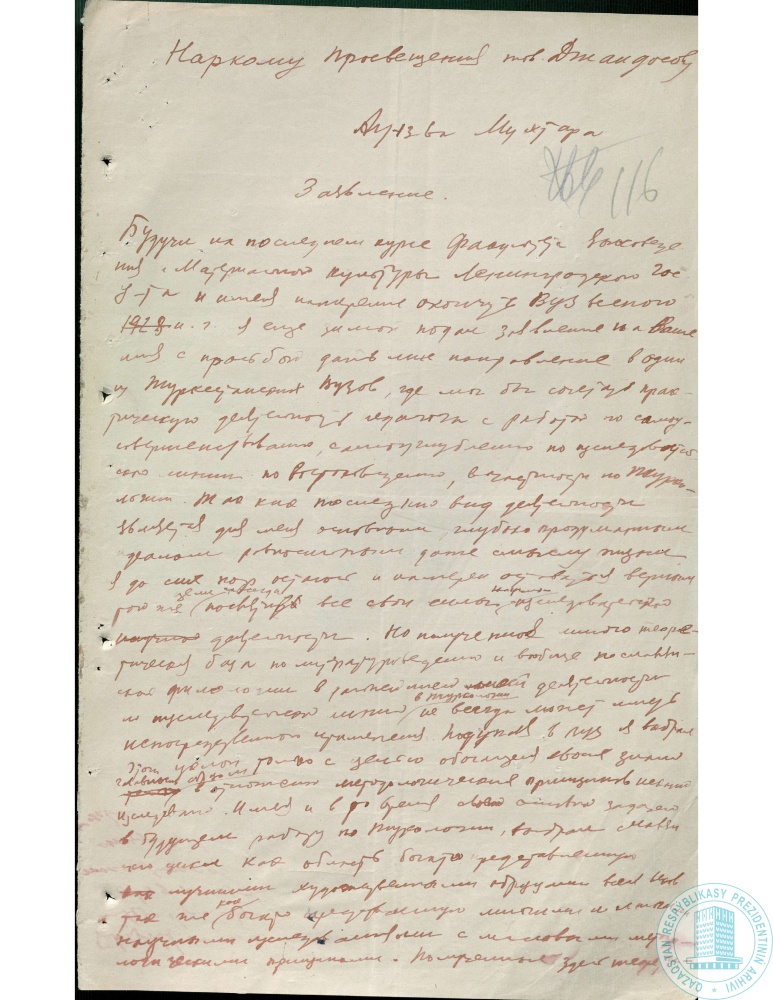 Наркому Просвещения тов. Джандосову
Ауэзова Мухтара
116
Заявление.
Будучи на последнем курсе факультета языковеде
ния и Материальной культуры Ленинградского Гос
У-та и имея намерение окончить ВУЗ весною
1928 н. г. я еще зимой подал заявление на Ваше
имя с просьбой дать мне направление в один
из Туркестанских Вузов, где мог бы сочетать прак-
тическую деятельность педагога с работой по самоу-
совершенствованию, самоуглублению по исследователь
ской линии по Востоковедению, в частности по Тюрко-
логии. Так как последний вид деятельности
является для меня основным, глубоко продуманным
идеалом равносильным даже смыслу жизни
я до сих пор остаюсь и намерен оставаться верным
той же цели посвятить все свои силы научно исследовательской
научной деятельности. Но полученная мною теоре-
тическая база по литературоведению и вообще по славян-
ской филологии в дальнейшей моей деятельности
по исследовательской линии в тюркологии не всегда может иметь
непосредственного применения. Поступая в вуз я выбрал
этот цикл только с целью обогащения своих знаний
главным образом в отношении методологических принципов
исследования. Имея и в то время своей задачей
в будущем работу по тюркологии, выбрал славян
ский цикл как область богато представленную
как лучшими художественными образцами
так же как богато многими
научными исследованиями с
логическими принципами. здесь
QAZAQSTAN RESPÝBLIKASY PREZIDENTINIŃ ARHIVI